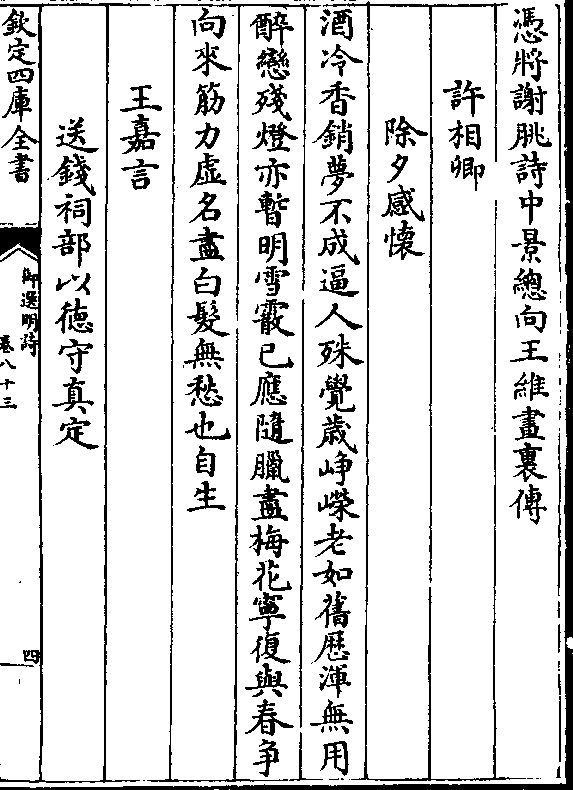 憑將謝朓詩中景總向王維畫裏傳
許相卿
除夕感懷
酒冷香銷夢不成逼人殊覺歳崢嶸老如舊厯渾無用
醉戀殘燈亦暫明雪霰已應隨臘盡梅花寧復與春爭
向來筋力虛名盡白髮無愁也自生
王嘉言
送錢祠部以徳守真定
欽定四庫全書
御選明詩
卷八十三
四